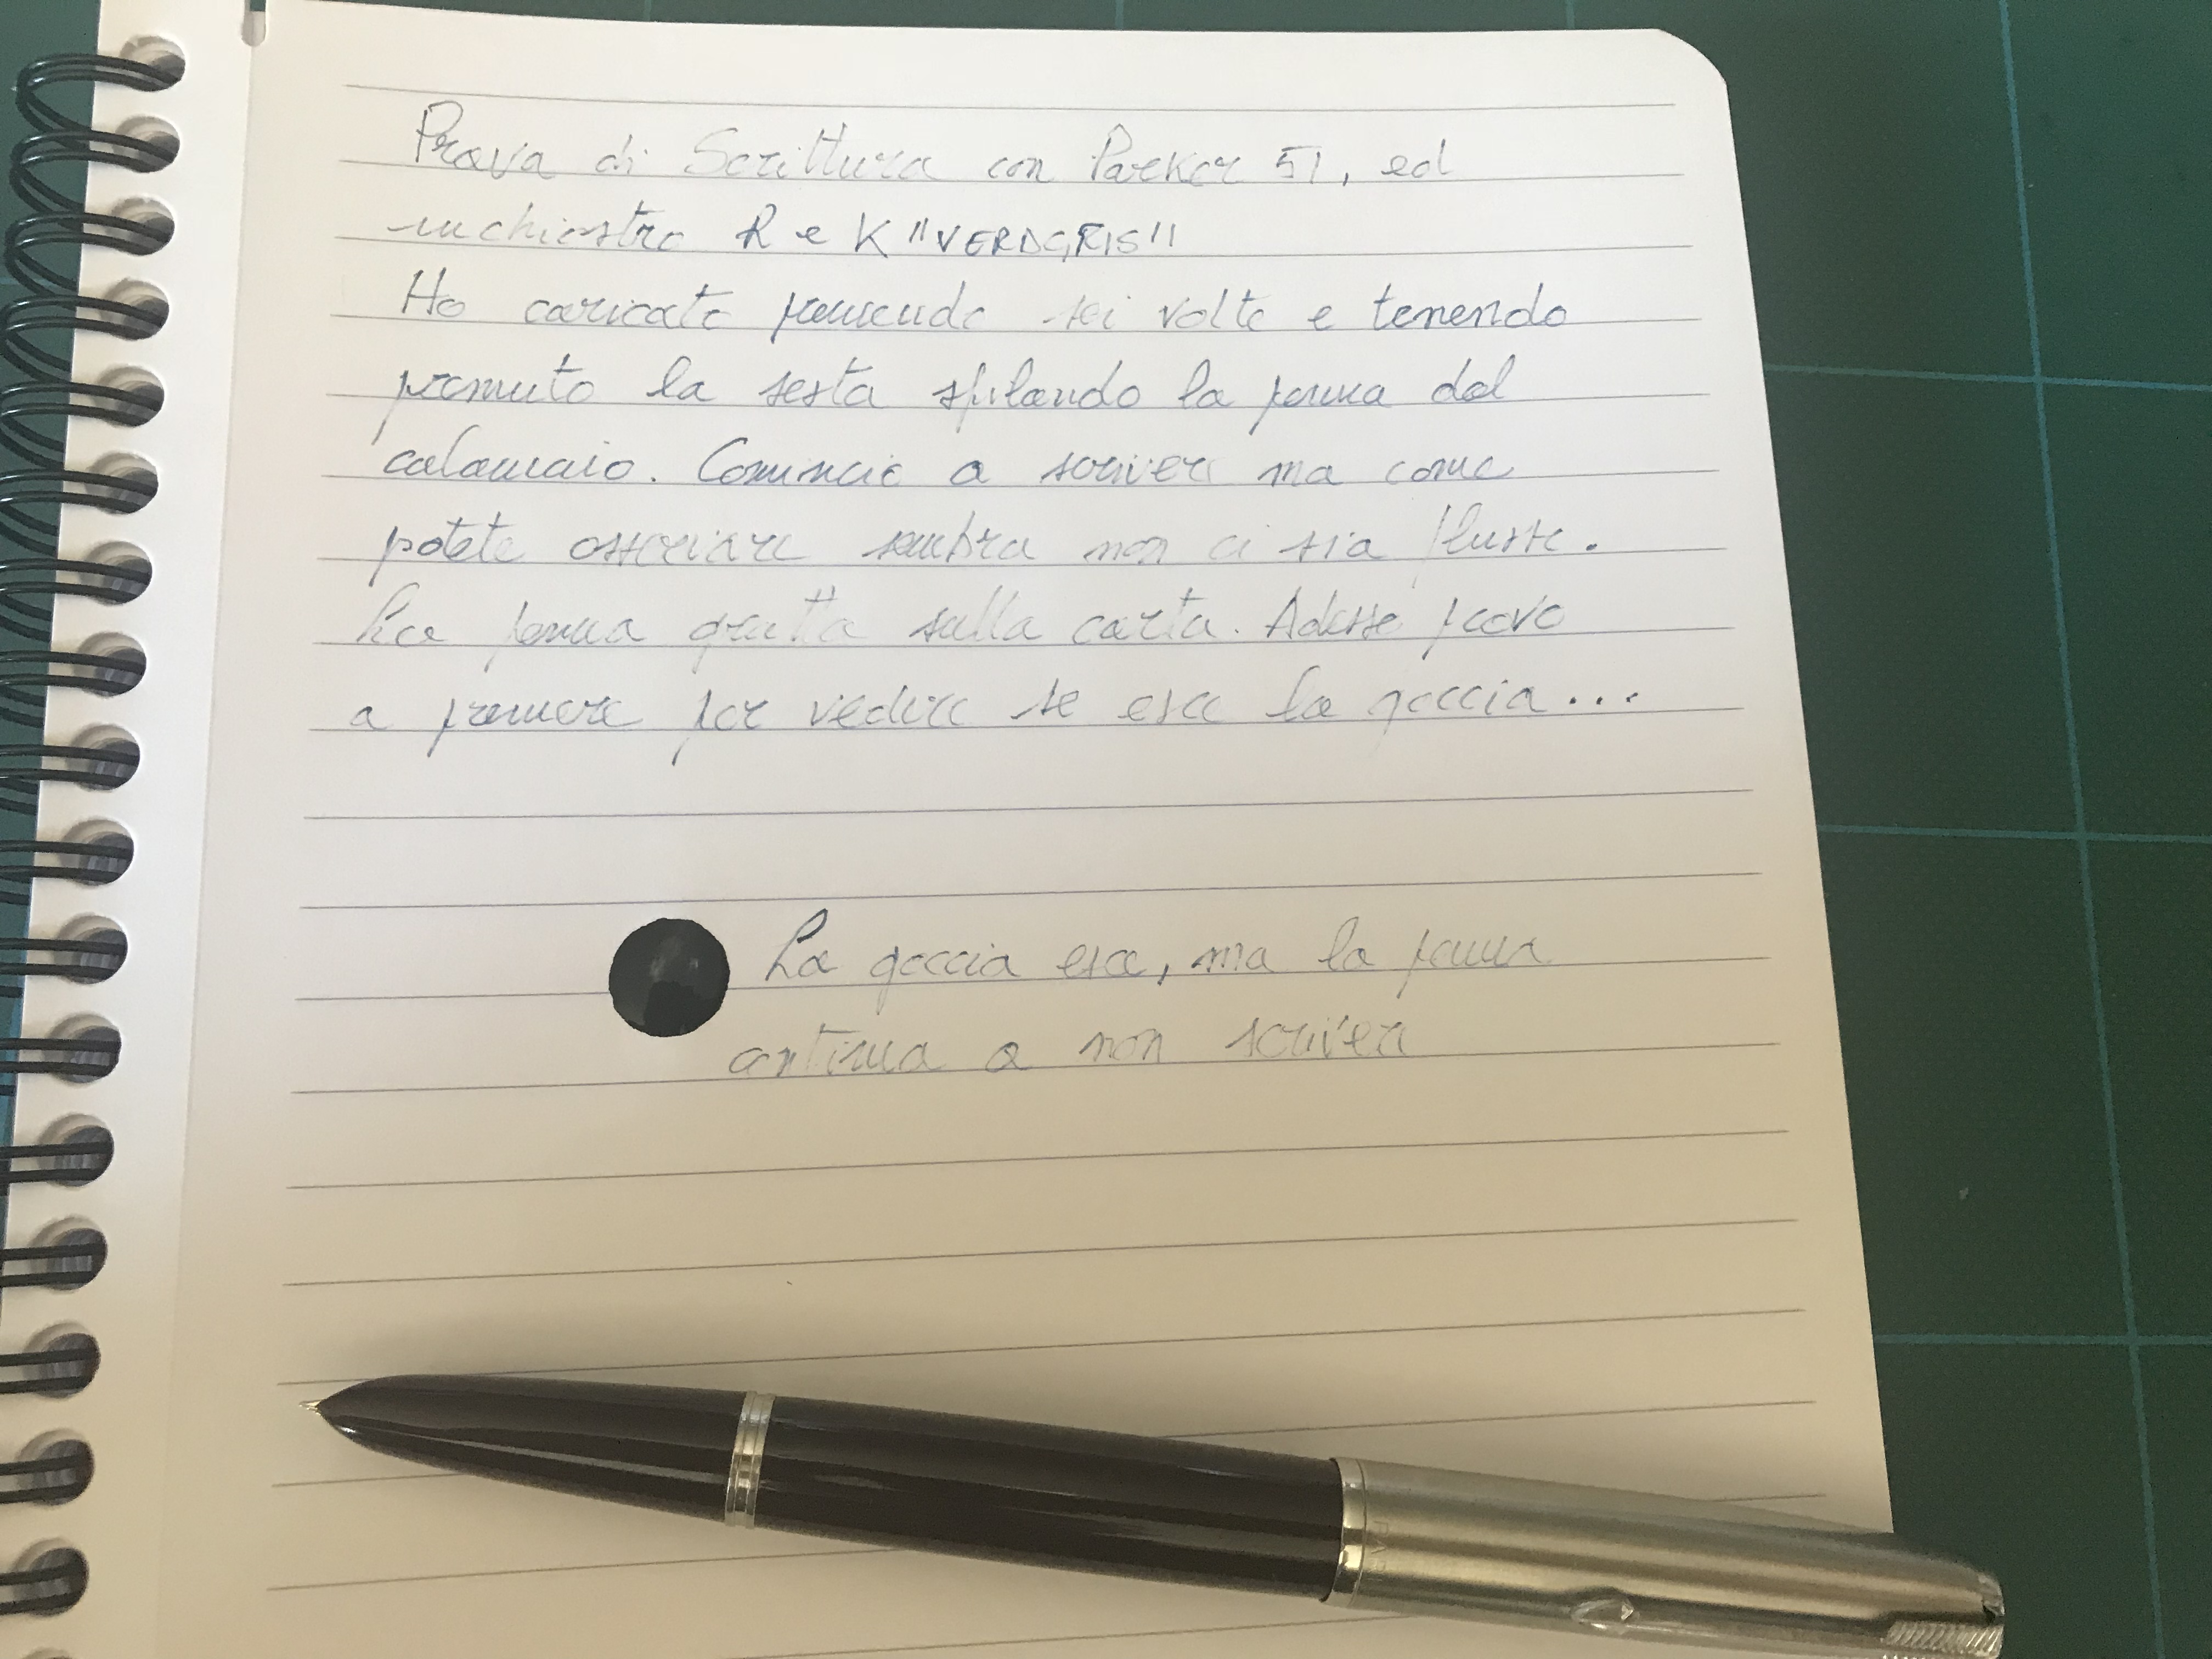 Prova di Scrittura con Parker 51, ed
inchiostro R e K "VERDGRIS"
Ho caricato premendo sei volte e tenendo
premuto la sesta sfilando la penna dal
calamaio. Comincio a scrivere ma come
potete osservare sembra non ci sia flusso.
La penna gratta sulla carta. Adesso provo
a premere per vedere se esce la goccia...
La goccia esce, ma la penna
continua a non scrivere